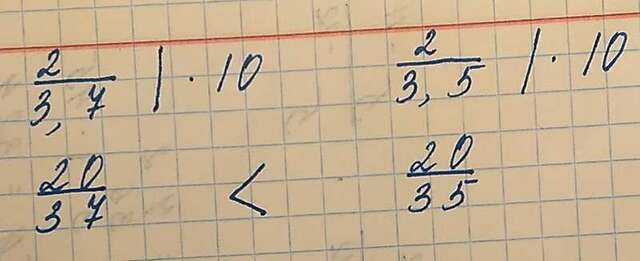 2/3,7 | · 10   2/3,5 | · 10
20/37 < 20/35